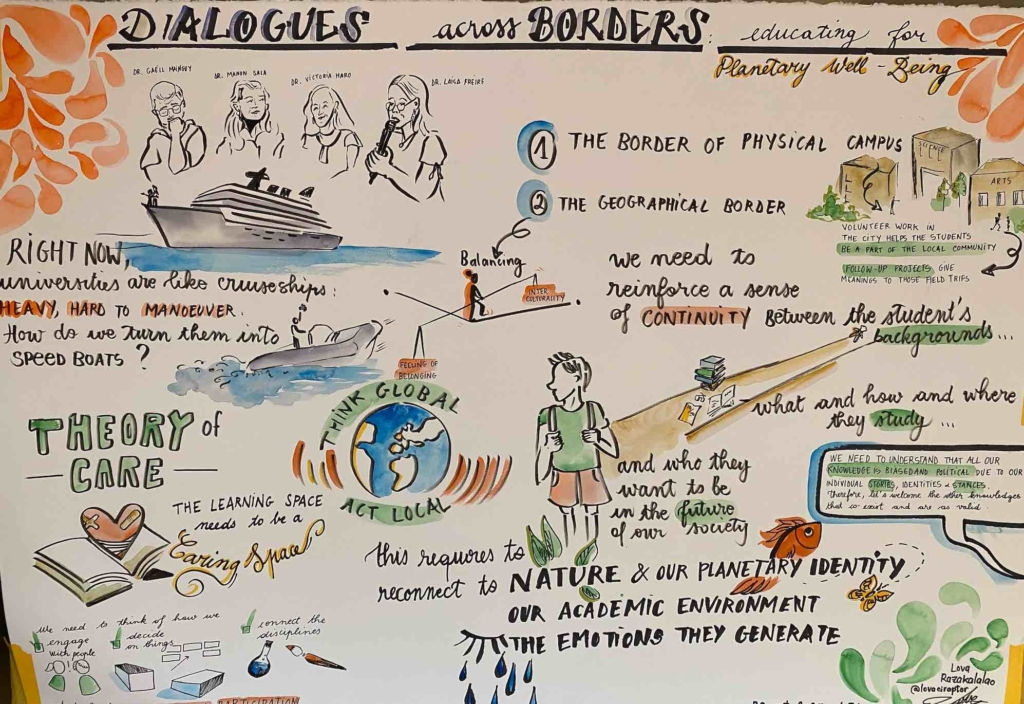 DIALOGUES across BORDERS: educating for
Planetary Well-Being
DR. MANON SALA
DR. VICTORIA HARO
DR. LAÍSA FREIRE
1 THE BORDER OF PHYSICAL CAMPUS
2 THE GEOGRAPHICAL BORDER
SCIENCE
ARTS
VOLUNTEER WORK IN
THE CITY HELPS THE STUDENTS
BE A PART OF THE LOCAL COMMUNITY
FOLLOW-UP PROJECTS GIVE
MEANINGS TO THOSE FIELD TRIPS
RIGHT NOW,
universities are like cruiseships:
HEAVY, HARD TO MANOEUVER.
How do we turn them into
SPEED BOATS?
Balancing
INTER
CULTURALITY
FEELING OF
BELONGING
we need to
reinforce a sense
of CONTINUITY Between the student's
backgrounds...
what and how and where
they study...
and who they
want to be
in the future
of our society
THINK GLOBAL
ACT LOCAL
THEORY of
CARE
THE LEARNING SPACE
needs to be a
Caring Space
WE NEED TO UNDERSTAND THAT ALL OUR
KNOWLEDGE IS BIASED AND POLITICAL DUE TO OUR
INDIVIDUAL STORIES, IDENTITIES & STANCES.
Therefore, let's welcome the other knowledges
that co exist and are as valid.
this requires to
reconnect to NATURE & OUR PLANETARY IDENTITY
OUR ACADEMIC ENVIRONMENT
THE EMOTIONS THEY GENERATE
We need to think of how we
engage
with people
decide
on things
connect the
disciplines
PARTICIPATION
Lova
Razakalalao
@lovaeiraptor